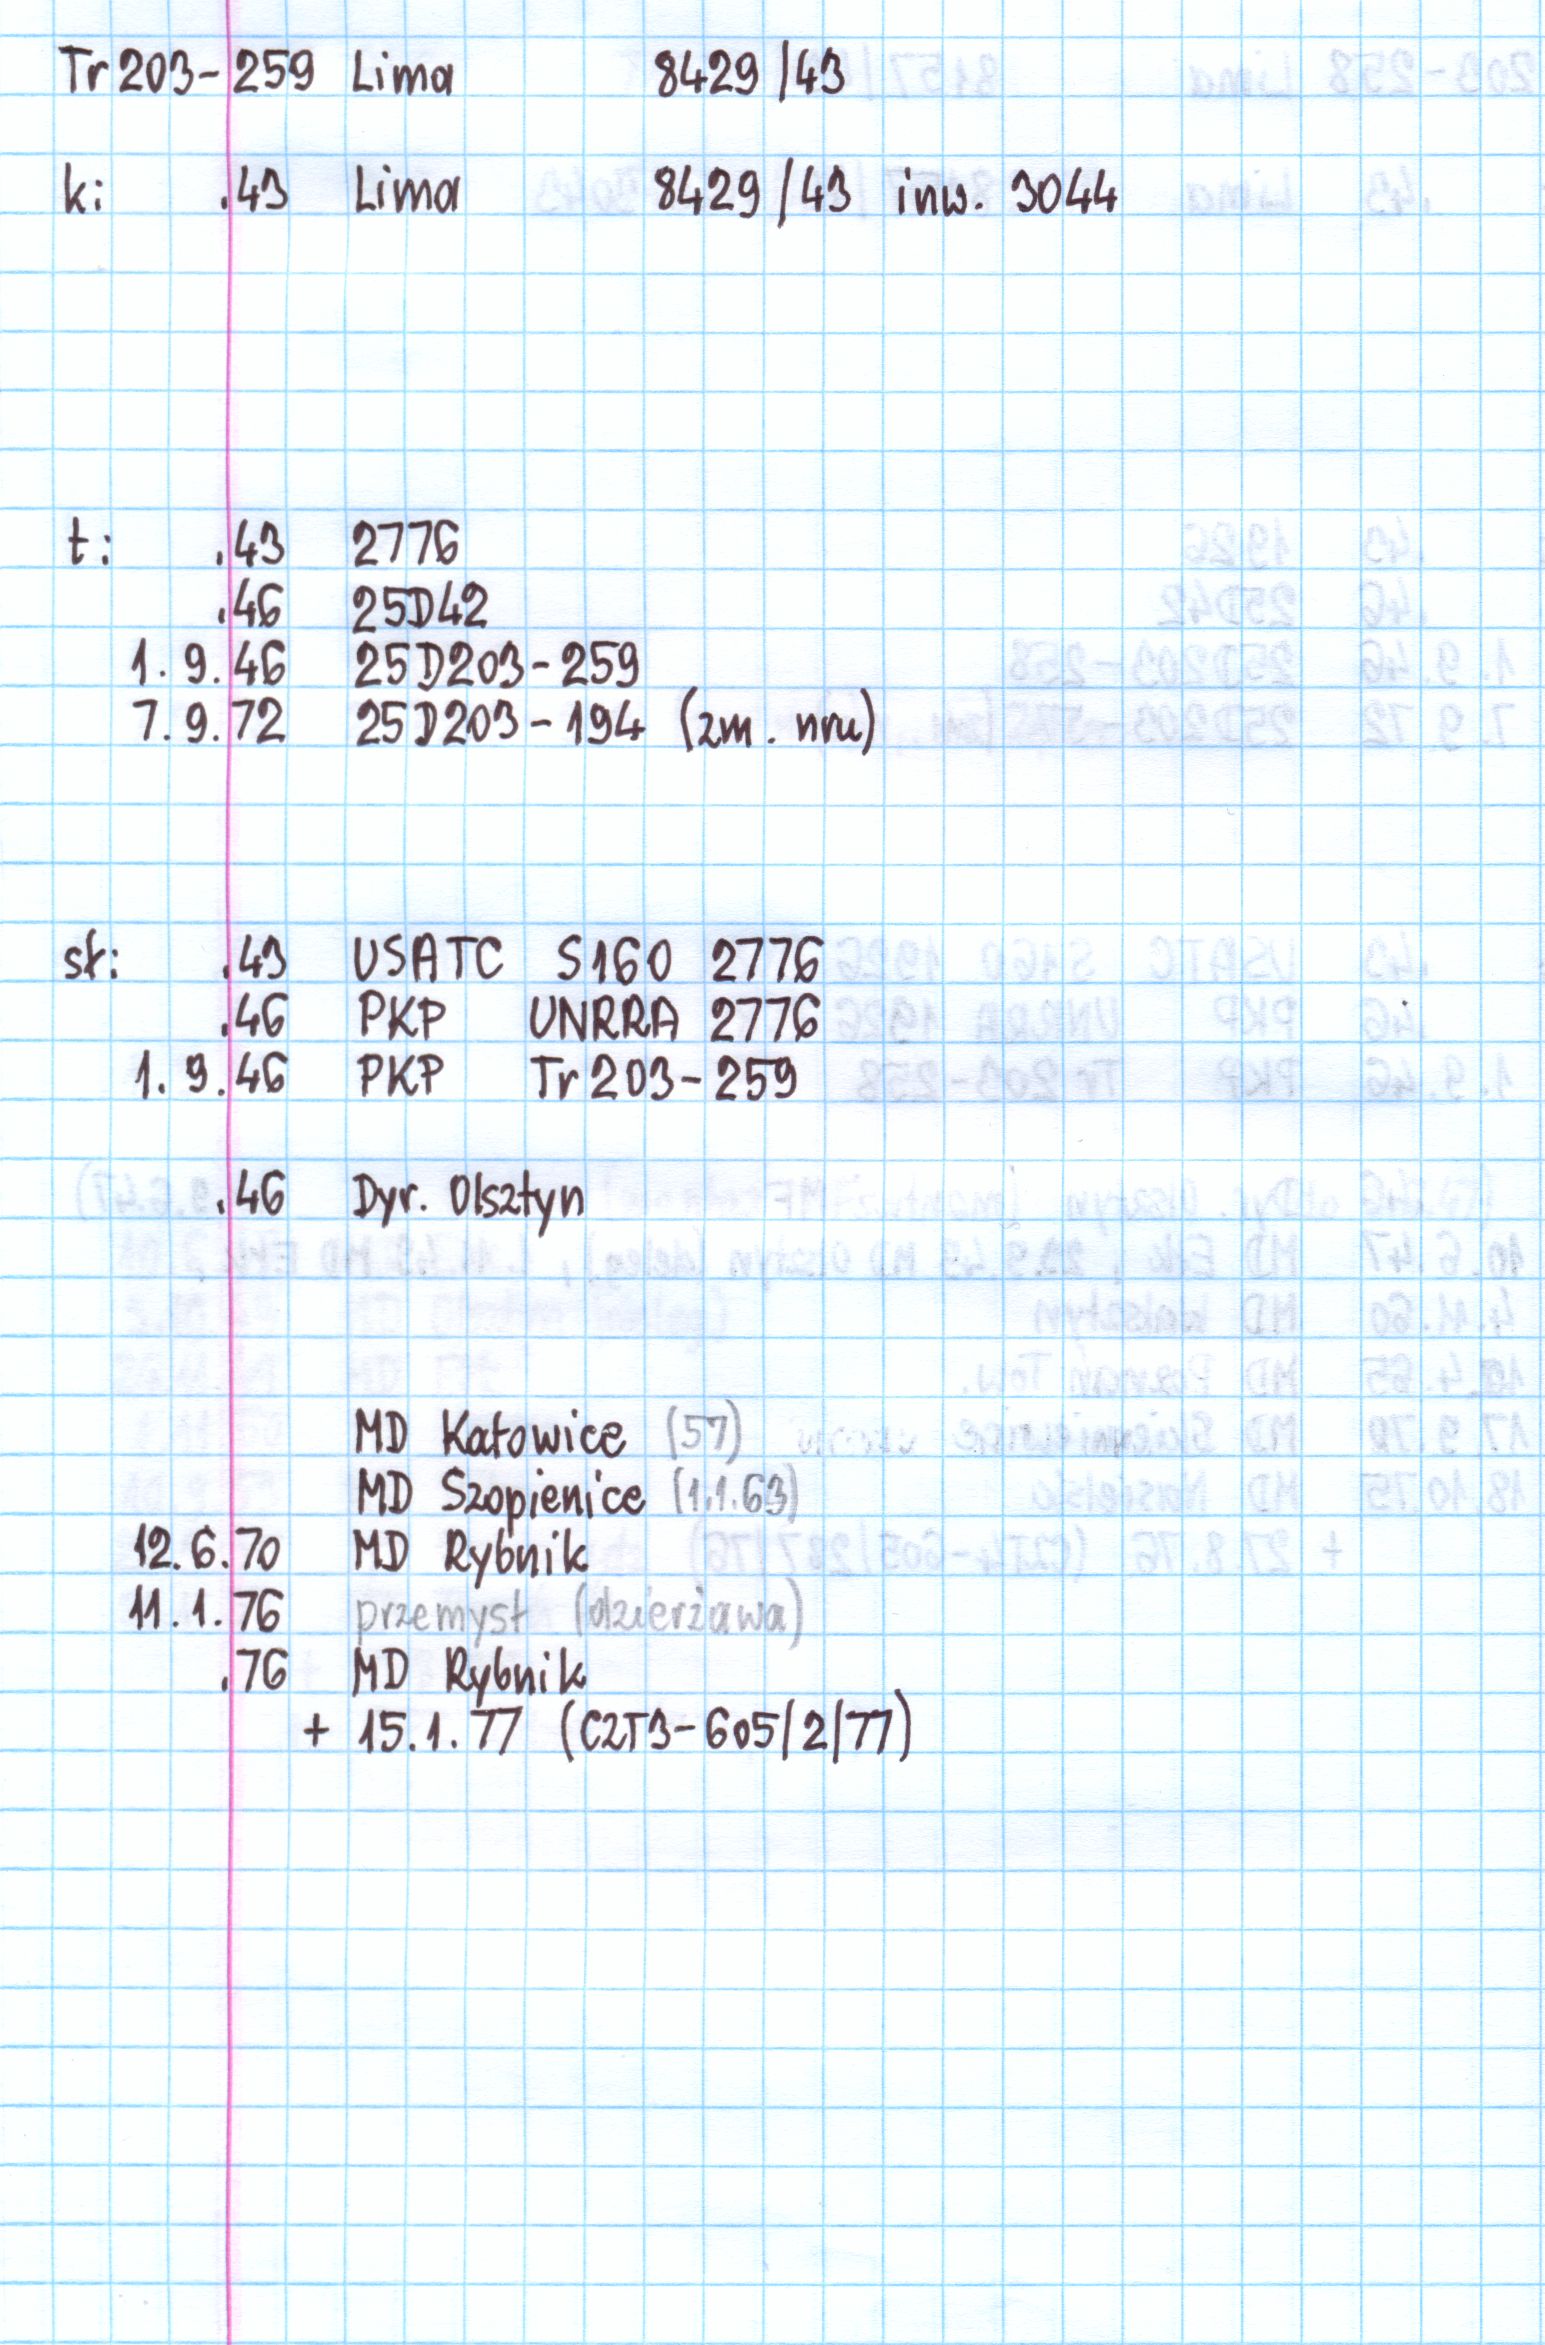 Tr203-259 Lima 8429/43
k: .43 Lima 8429/43 inw. 3044
t: .43 2776
.46 25D42
1.9.46 25D203-259
7.9.72 25D203-194 (zm. nru)
st: .43 USATC S160 2776
.46 PKP UNRRA 2776
1.9.46 PKP Tr203-259
.46 Dyr. Olsztyn
MD Katowice (57)
MD Szopienice (1.1.63)
12.6.70 MD Rybnik
11.1.76 przemysł (dzierżawa)
.76 MD Rybnik
+ 15.1.77 (C2T3-605/2/77)